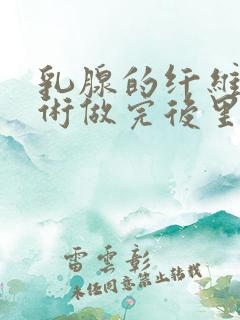 乳腺的纤维
术做完后里
雷云彰
未经同意禁止转载